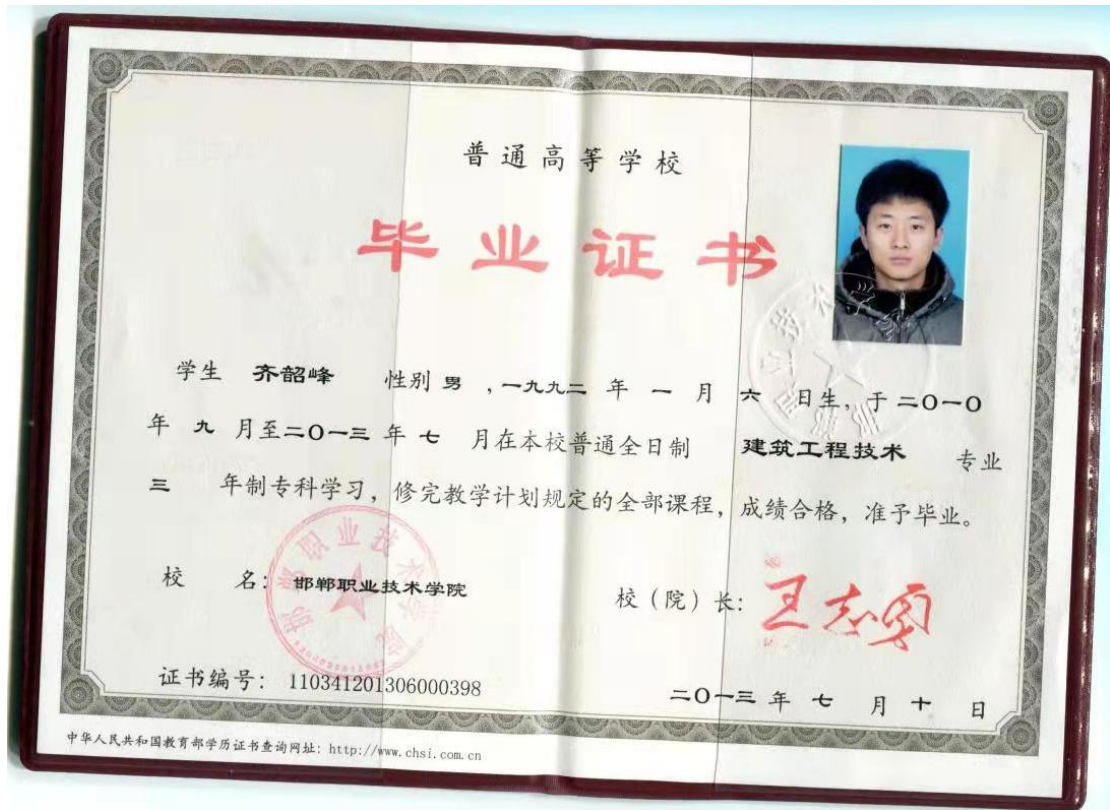 普通高等学校
毕业证书
学生 齐韶峰 性别 男 ，一九九二 年 一 月 六 日生，于二O一O
年 九 月至二O一三 年 七 月在本校普通全日制 建筑工程技术 专业
三 年制专科学习，修完教学计划规定的全部课程，成绩合格，准予毕业。
校 名：邯郸职业技术学院
校（院）长：王志勇
证书编号：110341201306000398
二O一三 年 七 月 十 日
中华人民共和国教育部学历证书查询网址：http://www.chsi.com.cn
邯郸职业技术学院